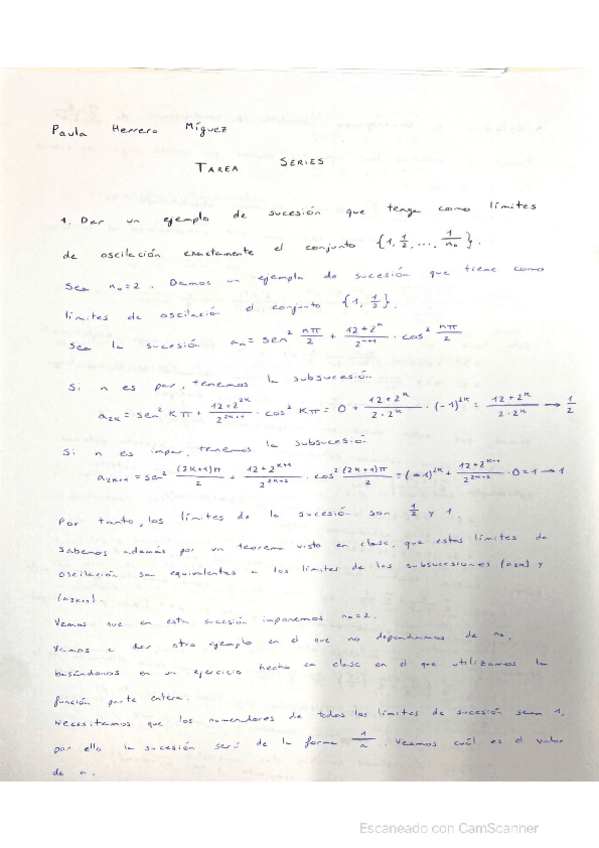 Paula Herrero Míguez
TAREA SERIES
1. Dar un ejemplo de sucesión que tenga como límites
de oscilación exactamente el conjunto {1, 1/2, ..., 1/n₀}.
Sea n₀=2. Damos un ejemplo de sucesión que tiene como
límites de oscilación el conjunto {1, 1/2}.
Sea la sucesión aₙ = sen² nπ/2 + 12+2ⁿ/2ⁿ⁺¹ · cos² nπ/2
Si n es par, tenemos la subsucesión
a₂ₖ = sen² Kπ + 12+2²ᴷ/2²ᴷ⁺¹ · cos² Kπ = 0 + 12+2ᴷ/2·2ᴷ · (-1)²ᴷ = 12+2ᴷ/2·2ᴷ → 1/2
Si n es impar, tenemos la subsucesión
a₂ₖ₊₁ = sen² (2K+1)π/2 + 12+2ᴷ⁺¹/2²ᴷ⁺² · cos² (2K+1)π/2 = (-1)²ᴷ + 12+2ᴷ⁺¹/2²ᴷ⁺² · 0 = 1 → 1
Por tanto, los límites de la sucesión son 1/2 y 1.
Sabemos además por un teorema visto en clase, que estos límites de
oscilación son equivalentes a los límites de las subsucesiones (a₂ₖ) y
(a₂ₖ₊₁)
Vemos que en esta sucesión imponemos n₀=2.
Vamos a dar otro ejemplo en el que no dependamos de n₀,
basándonos en un ejercicio hecho en clase en el que utilizamos la
función parte entera.
Necesitamos que los numeradores de todos los límites de sucesión sean 1,
por ello la sucesión será de la forma 1/a. Veamos cuál es el valor
de a.
Escaneado con CamScanner